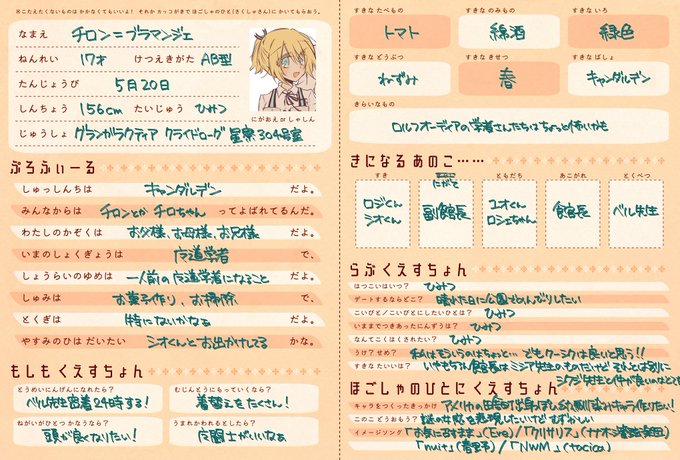 ※こたえたくないものは かかなくてもいいよ! それか カッコがきで ほごしゃのひと(さくしゃさん)に かいてもらおう。
なまえ チロン=ブラマンジェ
ねんれい 17才 けつえきがた AB型
たんじょうび 5月20日
しんちょう 156cm たいじゅう ひみつ
にがおえ or しゃしん
じゅうしょ グランガラクティア クライドローグ 星寮304号室
ぷろふぃーる
しゅっしんちは キャンダルデン だよ。
みんなからは チロンとか チロちゃん ってよばれてるんだ。
わたしのかぞくは お父様、お母様、お兄様 だよ。
いまのしょくぎょうは 魔道学者 で、
しょうらいのゆめは 一人前の魔道学者になること だよ。
しゅみは お菓子作り、お掃除 で、
とくぎは 特にないかなぁ だよ。
やすみのひは だいたい シオくんとお出かけしてる かな。
もしも くえすちょん
とうめいにんげんになれたら?
ベル先生密着24時する!
むじんとうにもっていくなら?
着替えをたくさん!
ねがいがひとつ かなうなら?
頭が良くなりたい!
うまれかわれるとしたら?
魔闘士がいいなぁ
すきな たべもの
トマト
すきな のみもの
綿酒
すきな いろ
緑色
すきな どうぶつ
ねずみ
すきな きせつ
春
すきな ばしょ
キャンダルデン
きらいなもの
ロルフオーディアの学者さんたちはちょっと怖いかも
きになる あのこ……
すき
ロジくん
シオくん
にがて
副館長
ともだち
ユオくん
ロシェちゃん
あこがれ
館長
とくべつ
ベル先生
らぶくえすちょん
はつこいはいつ? ひみつ
デートするならどこ? 晴れた日に公園でのんびりしたい
こいびと/こいびとにしたいひとは? ひみつ
いままでつきあったにんずうは? ひみつ
なんてこくはくされたい? ひみつ
うけ? せめ? 私はそういうのはちょっと… でもケーンクは良いと思う!!
すきな たいいは?
ほごしゃのひとに くえすちょん
キャラをつくったきっかけ
このこ どうおもう?
イメージソング 「お気に召すまま」(Eve)/「クリサリス」(ナナオシ管弦楽団)
「nuit」(春野)/「NWM」(tacica)